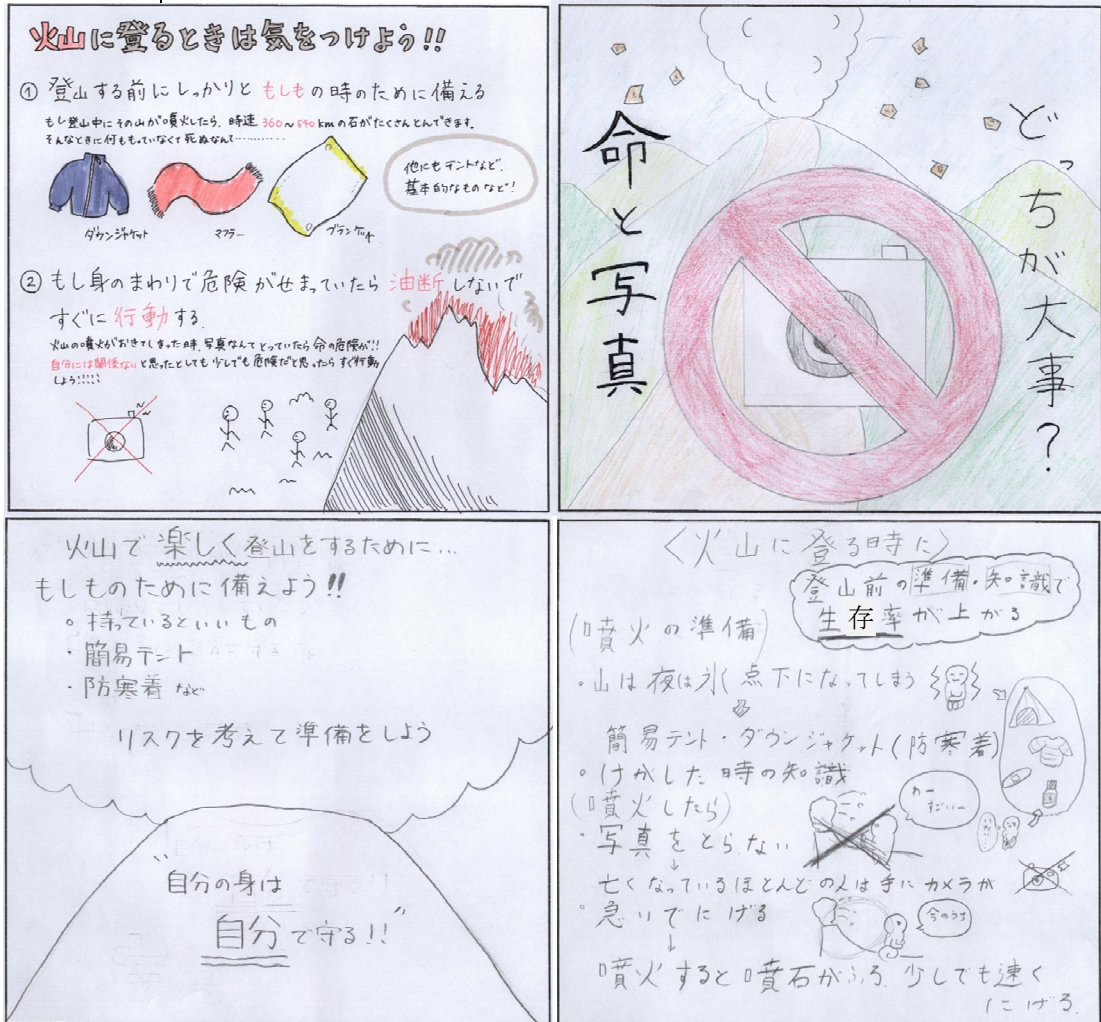 火山に登るときは気をつけよう!!
① 登山する前にしっかりともしもの時のために備える
もし登山中にその山が噴火したら、時速360〜540kmの石がたくさんとんできます。
そんなときに何ももっていなくて死ぬなんて…………
ダウンジャケット
マフラー
ブランケット
他にもテントなど、
基本的なものなど!
② もし身のまわりで危険がせまっていたら油断しないで
すぐに行動する。
火山の噴火がおきてしまった時、写真なんてとっていたら命の危険が!!
自分には関係ないと思ったとしても少しでも危険だと思ったらすぐ行動
しよう!!!!!
どっちが大事?
命と写真
火山で楽しく登山をするために…
もしものために備えよう!!
。持っているといいもの
・簡易テント
・防寒着 など
リスクを考えて準備をしよう
"自分の身は
自分で守る!!"
〈火山に登る時に〉
登山前の準備・知識で
生存率が上がる
(噴火の準備)
・山は夜は氷点下になってしまう
簡易テント・ダウンジャケット(防寒着)
。けがした時の知識
(噴火したら)
わー
すごいー
・写真をとらない
亡くなっているほとんどの人は手にカメラが
。急いでにげる
今のうち
噴火すると噴石がふる。少しでも速く
にげる。